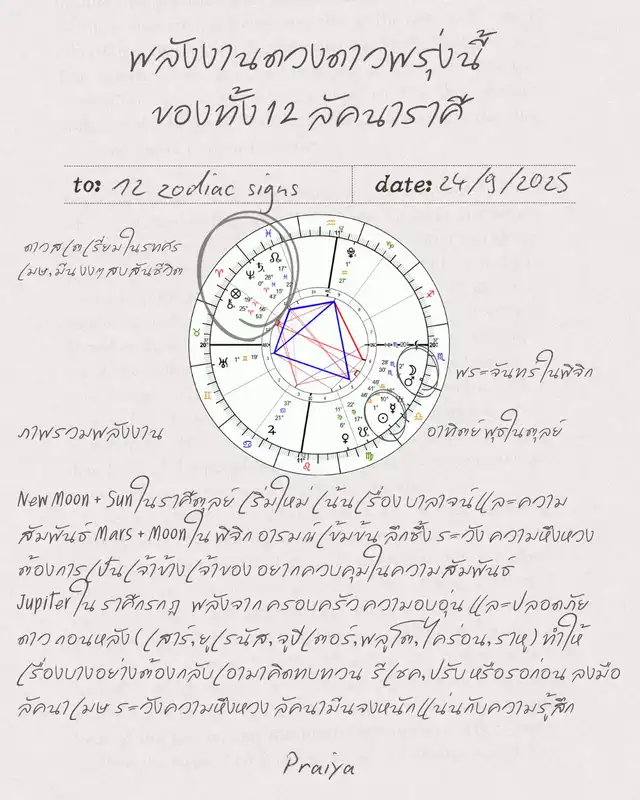 พลังงานดวงดาวพรุ่งนี้
ของทั้ง 12 ลัคนาราศี
to: 12 zodiac signs
date: 24/9/2025
ดาวสเตเรียมในรทศร
เมษ,มีน งงๆ สบสันชีวิต
พระจันทร์ในพิจิก
ภาพรวมพลังงาน
อาทิตย์ พุธในตุลย์
New Moon + Sun ในราศีตุลย์ เริ่มใหม่ เน้นเรื่องบาลาจน์และความ
สัมพันธ์ Mars + Moon ใน พิจิก อารมณ์เข้มข้น ลึกซึ้ง ระวัง ความหึงหวง
ต้องการเป็นเจ้าข้างเจ้าของ อยากควบคุมในความสัมพันธ์
Jupiter ใน ราศีกรกฏ พลังจาก ครอบครัว ความอบอุ่น และปลอดภัย
ดาว ถอนหลัง (เสาร์,ยูเรนัส,จูปีเตอร์,พลูโต,ไคร่อน,ราหู) ทำให้
เรื่องบางอย่างต้องกลับเอามาคิดทบทวน รีเชค,ปรับ หรือรอก่อน ลงมือ
ลัคนาเมษ ระวังความหึงหวง ลัคนามีนจงหนักแน่นกับความรู้สึก
Praiya